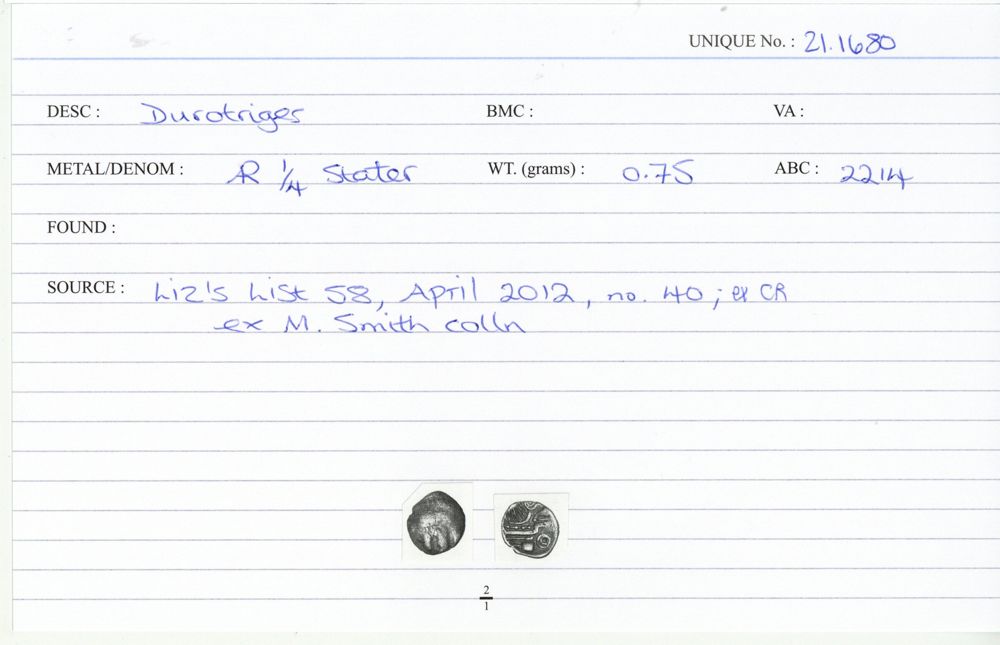 UNIQUE No. : 21.1680
DESC : Durotriges BMC : VA :
METAL/DENOM : AR 1/4 Stater WT. (grams) : 0.75 ABC : 2214
FOUND :
SOURCE : Liz's List 58, April 2012, no. 40; ex CR
ex M. Smith colln
2
1